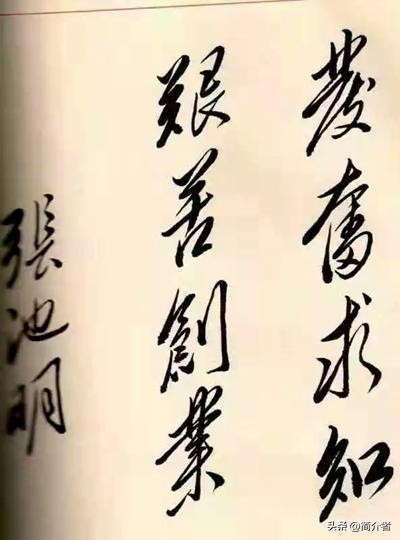 發奮求知
艱苦創業
張池明
头条 @简介省